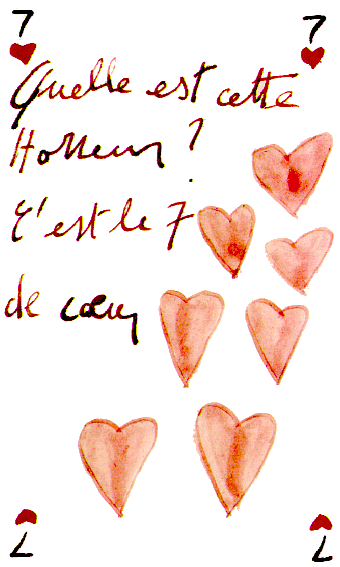 7 7
Quelle est cette
Horreur ?
C'est le 7
de cœur
7 7